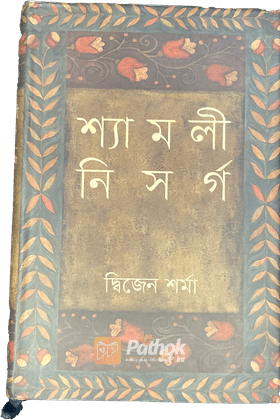 শ্যামলী
নিসর্গ
দ্বিজেন শর্মা
Pathok